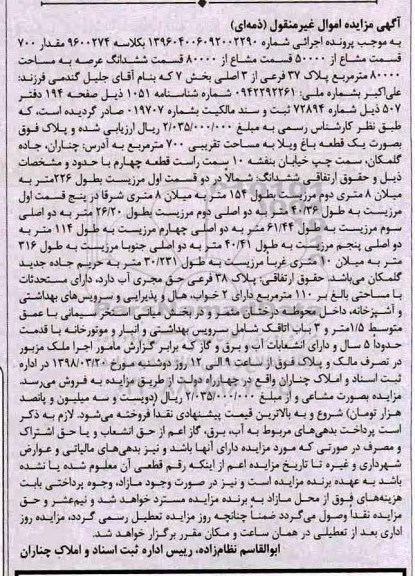 آگهی مزایده اموال غیرمنقول (ذمه‌ای)
به موجب پرونده اجرائی شماره ۱۳۹۶۰۴۰۰۶۰۹۲۰۰۲۲۹۰ بکلاسه ۹۶۰۰۲۷۴ مقدار ۷۰۰
قسمت مشاع از ۵۰۰۰۰ قسمت مشاع از ۸۰۰۰۰ قسمت ششدانگ عرصه به مساحت
۸۰۰۰۰ مترمربع پلاک ۳۷ فرعی از ۳ اصلی بخش ۷ که بنام آقای جلیل گندمی فرزند:
علی‌اکبر بشماره ملی: ۰۹۴۲۲۹۲۲۶۱ شماره شناسنامه ۱۰۵۱ ذیل صفحه ۱۹۴ دفتر
۵۰۷ ذیل شماره ۷۲۸۹۴ ثبت و سند مالکیت بشماره ۰۱۹۷۰۷ صادر گردیده است، که
طبق نظر کارشناس رسمی به مبلغ ۲/۰۳۵/۰۰۰/۰۰۰ ریال ارزیابی شده و پلاک فوق
بصورت یک قطعه باغ ویلا به مساحت تقریبی ۷۰۰ مترمربع به آدرس: چناران، جاده
گلمکان، سمت چپ خیابان بنفشه ۱۰ سمت راست قطعه چهارم با حدود و مشخصات
ذیل و حقوق ارتفاقی ششدانگ: شمالاً در دو قسمت اول مرزیست بطول ۲۲۶متر به
میلان ۸ متری دوم مرزیست بطول ۱۵۴ متر به میلان ۸ متری شرقا در پنج قسمت اول
مرزیست به طول ۴۰/۳۶ متر به دو اصلی دوم مرزیست بطول ۲۶/۲۰ متر به دو اصلی
سوم مرزیست به طول ۶۱/۴۴ متر به دو اصلی چهارم مرزیست به طول ۱۱۴ متر به
دو اصلی پنجم مرزیست به طول ۴۰/۴۱ متر به دو اصلی جنوبا مرزیست به طول ۳۱۶
متر به میلان ۱۰ متری غرباً مرزیست به طول ۳۰/۲۳۱ متر به حریم جاده جدید
گلمکان می‌باشد. حقوق ارتفاقی: پلاک ۳۸ فرعی حق مجری آب دارد، دارای مستحدثات
با مساحتی بالغ بر ۱۱۰ مترمربع دارای ۲ خواب، هال و پذیرایی و سرویس‌های بهداشتی
و آشپزخانه، داخل محوطه درختان مثمر و در بخش میانی استخر سیمانی با عمق
متوسط ۱/۵متر و ۳ باب اتاقک شامل سرویس بهداشتی و انبار و موتورخانه با قدمت
حدوداً ۵ سال و دارای انشعابات آب و برق و گاز که برابر گزارش مأمور اجرا ملک مزبور
در تصرف مالک و پلاک فوق از ساعت ۹ الی ۱۲ روز دوشنبه مورخ ۱۳۹۸/۰۳/۲۰ در اداره
ثبت اسناد و املاک چناران واقع در چهارراه دولت از طریق مزایده به فروش می‌رسد.
مزایده بصورت مشاعی و از مبلغ ۲/۰۳۵/۰۰۰/۰۰۰ ریال (دویست و سه میلیون و پانصد
هزار تومان) شروع و به بالاترین قیمت پیشنهادی نقداً فروخته می‌شود. لازم به ذکر
است پرداخت بدهی‌های مربوط به آب، برق، گاز اعم از حق انشعاب و یا حق اشتراک
و مصرف در صورتی که مورد مزایده دارای آنها باشد و نیز بدهی‌های مالیاتی و عوارض
شهرداری و غیره تا تاریخ مزایده اعم از اینکه رقم قطعی آن معلوم شده یا نشده
باشد به عهده برنده مزایده است و نیز در صورت وجود مازاد، وجوه پرداختی بابت
هزینه‌های فوق از محل مازاد به برنده مزایده مسترد خواهد شد و نیم‌عشر و حق
مزایده نقداً وصول می‌گردد ضمناً چنانچه روز مزایده تعطیل رسمی گردد، مزایده روز
اداری بعد از تعطیلی در همان ساعت و مکان مقرر برگزار خواهد شد.
ابوالقاسم نظام‌زاده، رییس اداره ثبت اسناد و املاک چناران